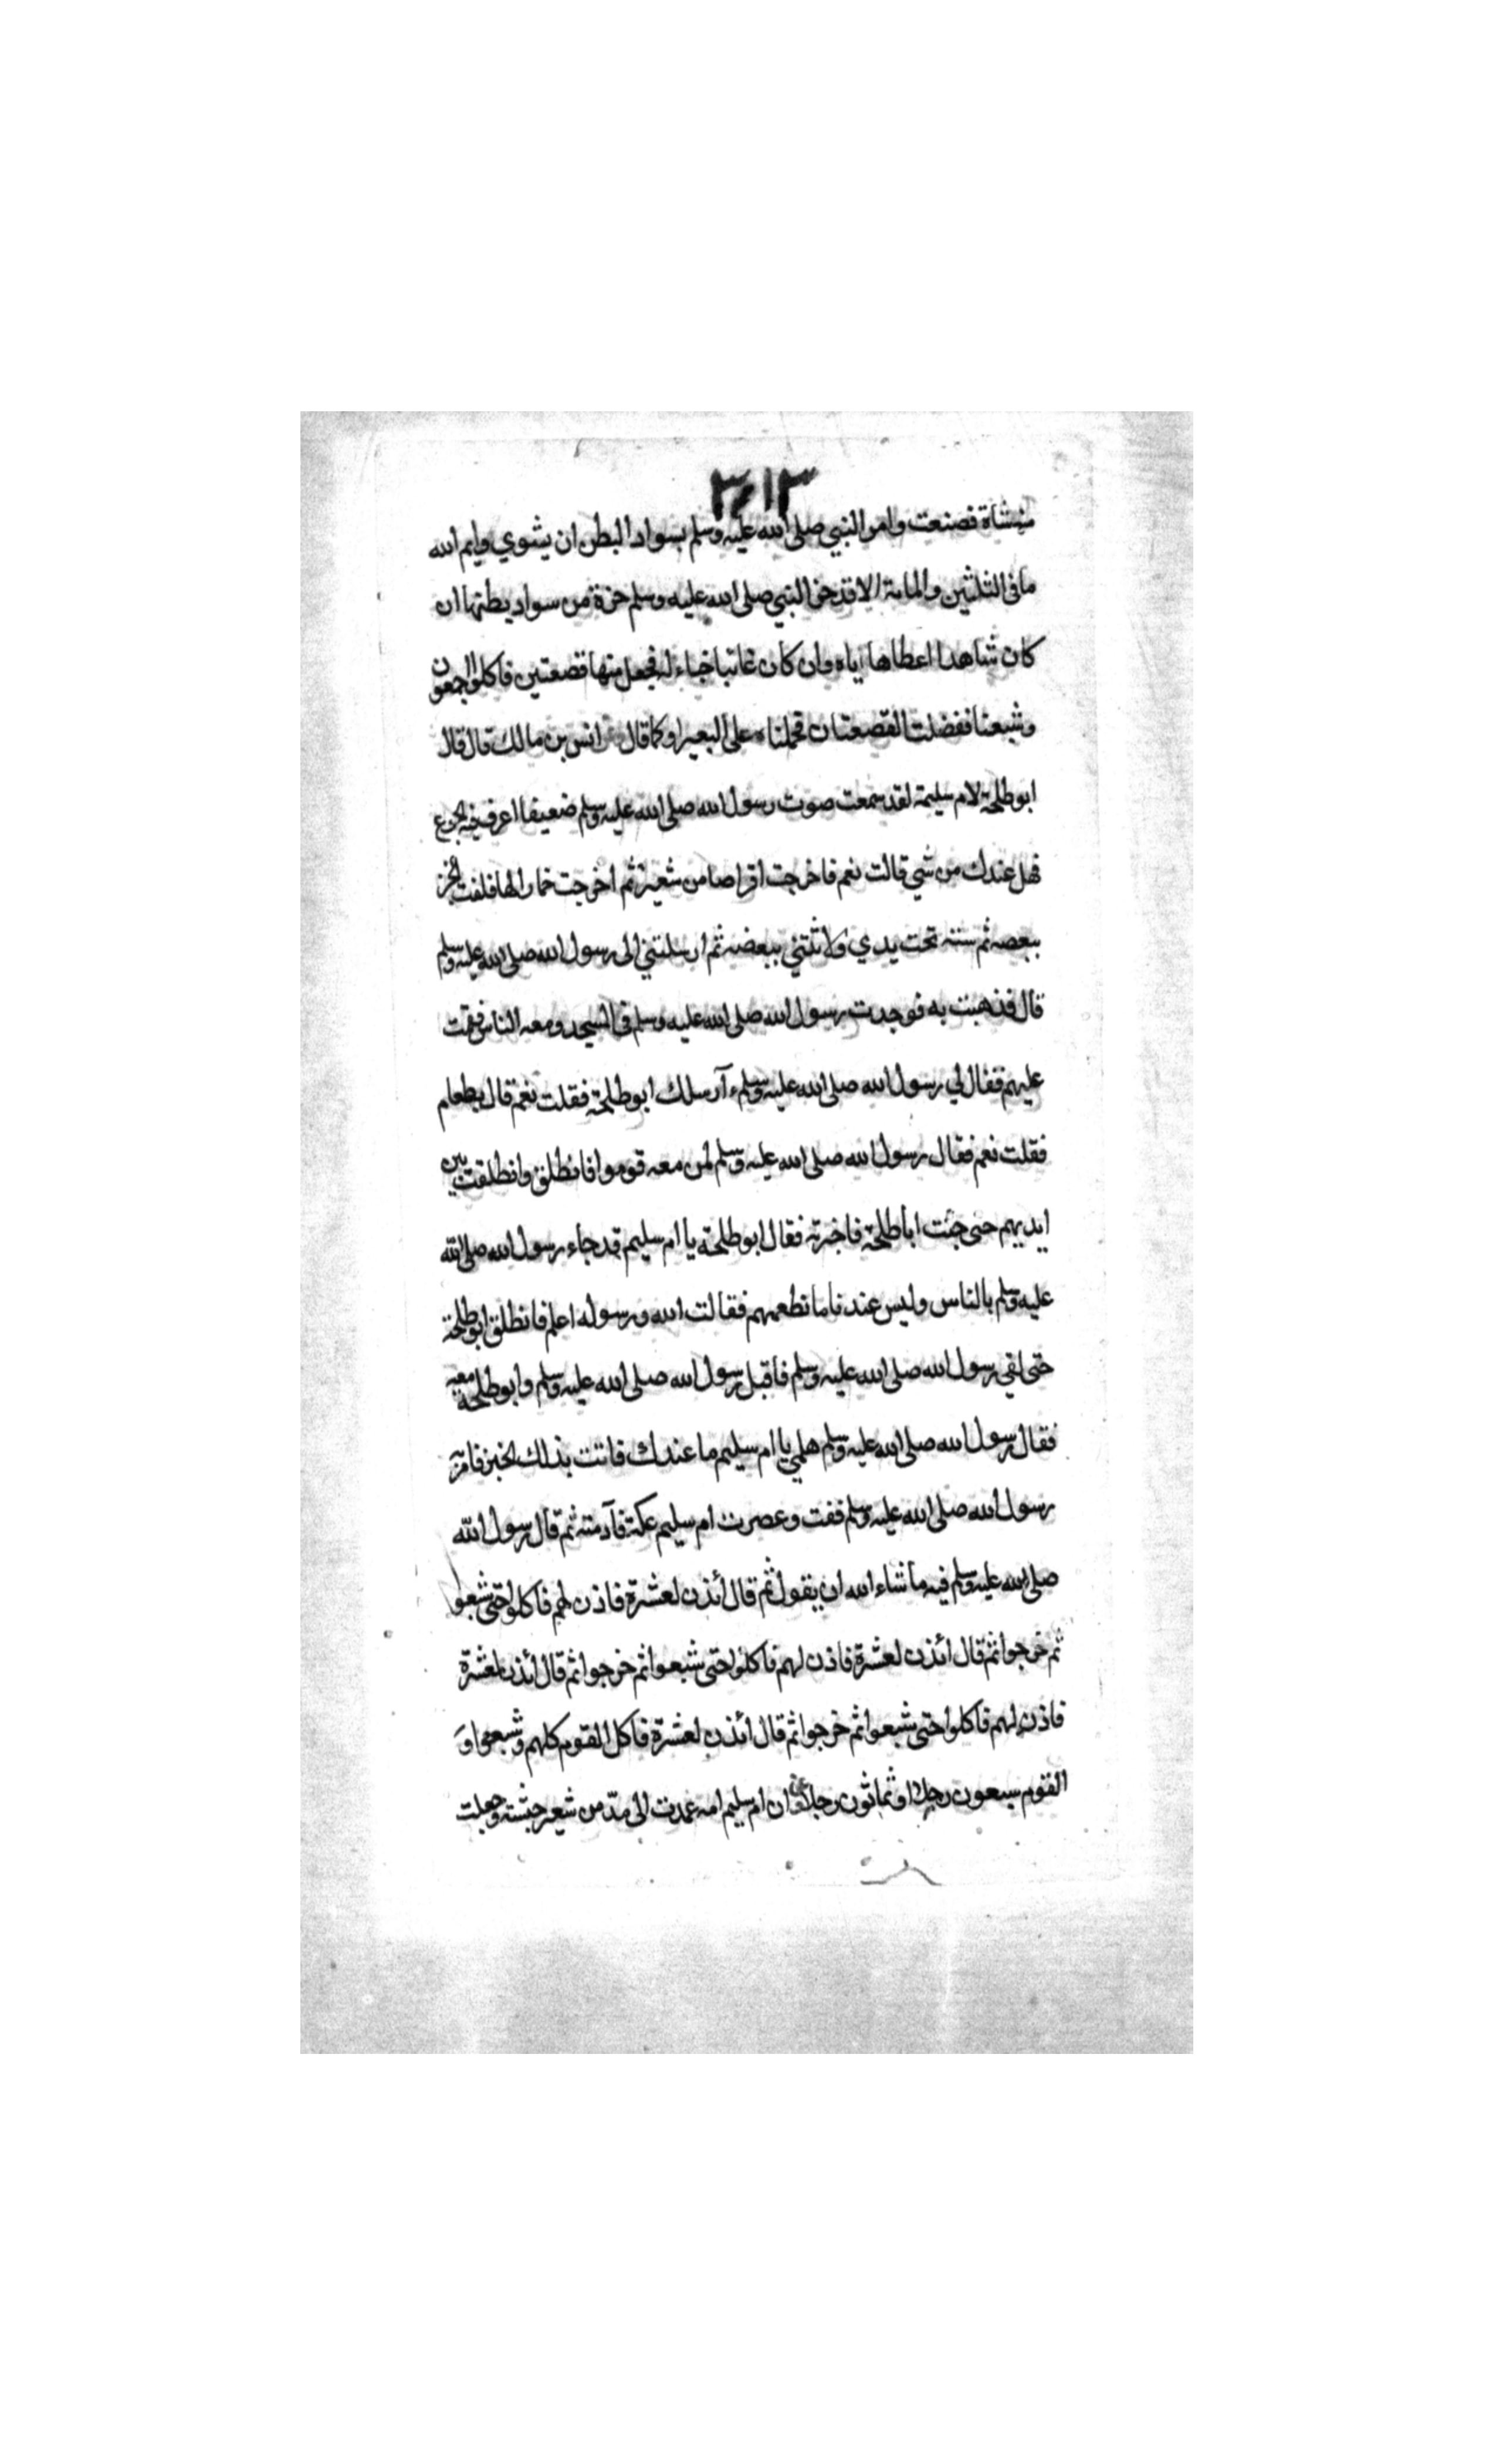 ٣١٣
منه شاة فصنعت وامر النبي صلى الله عليه وسلم بسواد البطن ان يشوي وايم الله
ما في الثلثين والمائة الا قد حز النبي صلى الله عليه وسلم حزة من سواد بطنها ان
كان شاهدا اعطاها اياه وان كان غائبا خباء له فجعل منها قصعتين فاكلوا اجمعون
وشبعنا ففضلت القصعتان فحملناه على البعير او كما قال انس بن مالك قال قال
ابو طلحة لام سليمة لقد سمعت صوت رسول الله صلى الله عليه وسلم ضعيفا اعرف فيه الجوع
فهل عندك من شي قالت نعم فاخرجت اقراصا من شعير ثم اخرجت خمارا لها فلفت الخبز
ببعضه ثم دسته تحت يدي ولاثتني ببعضه ثم ارسلتني الى رسول الله صلى الله عليه وسلم
قال فذهبت به فوجدت رسول الله صلى الله عليه وسلم في المسجد ومعه الناس فقمت
عليهم فقال لي رسول الله صلى الله عليه وسلم آرسلك ابو طلحة فقلت نعم قال بطعام
فقلت نعم فقال رسول الله صلى الله عليه وسلم لمن معه قوموا فانطلق وانطلقت بين
ايديهم حتى جئت ابا طلحة فاخبرته فقال ابو طلحة يا ام سليم قد جاء رسول الله صلى الله
عليه وسلم بالناس وليس عندنا ما نطعمهم فقالت الله ورسوله اعلم فانطلق ابو طلحة
حتى لقي رسول الله صلى الله عليه وسلم فاقبل رسول الله صلى الله عليه وسلم وابو طلحة معه
فقال رسول الله صلى الله عليه وسلم هلمي يا ام سليم ما عندك فاتت بذلك الخبز فامر به
رسول الله صلى الله عليه وسلم ففت وعصرت ام سليم عكة فآدمته ثم قال رسول الله
صلى الله عليه وسلم فيه ما شاء الله ان يقول ثم قال ائذن لعشرة فاذن لهم فاكلوا حتى شبعوا
ثم خرجوا ثم قال ائذن لعشرة فاذن لهم فاكلوا حتى شبعوا ثم خرجوا ثم قال ائذن لعشرة
فاذن لهم فاكلوا حتى شبعوا ثم خرجوا ثم قال ائذن لعشرة فاكل القوم كلهم وشبعوا و
القوم سبعون رجلا او ثمانون رجلا وعن ان ام سليم امه عمدت الى مد من شعير جشته وجعلت